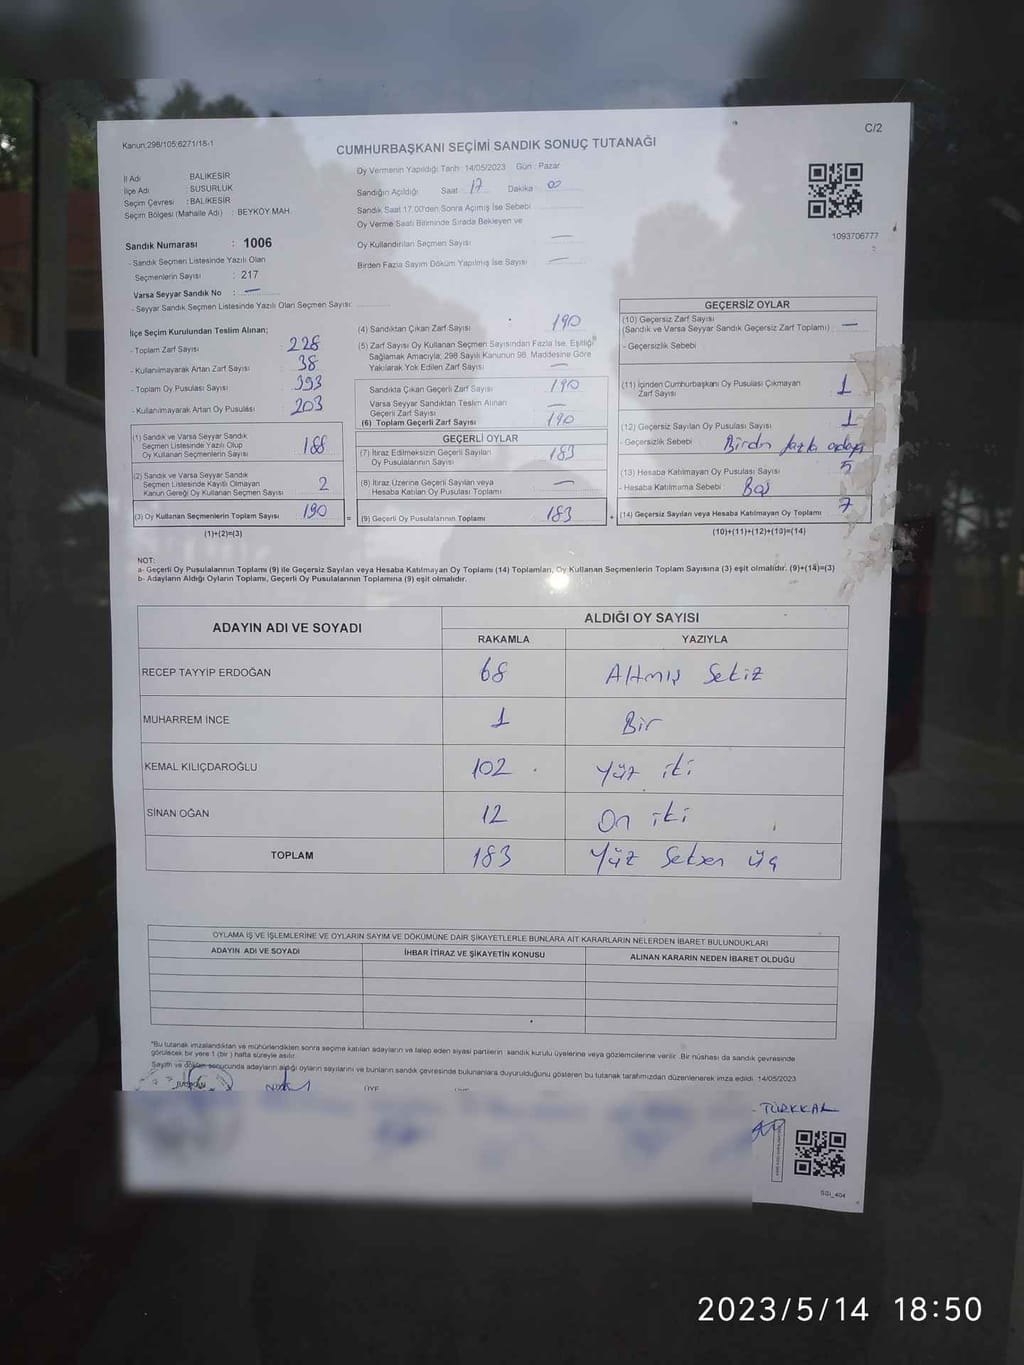 C/2
Kanun:298/105;6271/18-1
CUMHURBAŞKANI SEÇİMİ SANDIK SONUÇ TUTANAĞI
İl Adı : BALIKESİR
İlçe Adı : SUSURLUK
Seçim Çevresi : BALIKESİR
Seçim Bölgesi (Mahalle Adı) : BEYKÖY MAH.
Sandık Numarası : 1006
- Sandık Seçmen Listesinde Yazılı Olan
Seçmenlerin Sayısı : 217
Varsa Seyyar Sandık No : —
- Seyyar Sandık Seçmen Listesinde Yazılı Olan Seçmen Sayısı:
Oy Vermenin Yapıldığı Tarih :14/05/2023 Gün : Pazar
Sandığın Açıldığı Saat : 17 Dakika : 00
Sandık Saat 17.00'den Sonra Açılmış İse Sebebi
Oy Verme Saati Bitiminde Sırada Bekleyen ve
Oy Kullandırılan Seçmen Sayısı —
Birden Fazla Sayım Döküm Yapılmış İse Sayısı —
1093706777
İlçe Seçim Kurulundan Teslim Alınan;
- Toplam Zarf Sayısı : 228
- Kullanılmayarak Artan Zarf Sayısı : 38
- Toplam Oy Pusulası Sayısı : 393
- Kullanılmayarak Artan Oy Pusulası : 203
(1) Sandık ve Varsa Seyyar Sandık
Seçmen Listesinde Yazılı Olup
Oy Kullanan Seçmenlerin Sayısı 188
(2) Sandık ve Varsa Seyyar Sandık
Seçmen Listesinde Kayıtlı Olmayan
Kanun Gereği Oy Kullanan Seçmen Sayısı 2
(3) Oy Kullanan Seçmenlerin Toplam Sayısı 190 =
(1)+(2)=(3)
(4) Sandıktan Çıkan Zarf Sayısı 190
(5) Zarf Sayısı Oy Kullanan Seçmen Sayısından Fazla İse, Eşitliği
Sağlamak Amacıyla; 298 Sayılı Kanunun 98. Maddesine Göre
Yakılarak Yok Edilen Zarf Sayısı —
Sandıkta Çıkan Geçerli Zarf Sayısı 190
Varsa Seyyar Sandıktan Teslim Alınan
Geçerli Zarf Sayısı —
(6) Toplam Geçerli Zarf Sayısı 190
GEÇERLİ OYLAR
(7) İtiraz Edilmeksizin Geçerli Sayılan
Oy Pusulalarının Sayısı 183
(8) İtiraz Üzerine Geçerli Sayılan veya
Hesaba Katılan Oy Pusulası Toplamı —
(9) Geçerli Oy Pusulalarının Toplamı 183 +
GEÇERSİZ OYLAR
(10) Geçersiz Zarf Sayısı
(Sandık ve Varsa Seyyar Sandık Geçersiz Zarf Toplamı) : —
- Geçersizlik Sebebi :
(11) İçinden Cumhurbaşkanı Oy Pusulası Çıkmayan
Zarf Sayısı 1
(12) Geçersiz Sayılan Oy Pusulası Sayısı 1
- Geçersizlik Sebebi : Birden fazla adaya
(13) Hesaba Katılmayan Oy Pusulası Sayısı 5
- Hesaba Katılmama Sebebi : Boş
(14) Geçersiz Sayılan veya Hesaba Katılmayan Oy Toplamı 7
(10)+(11)+(12)+(13)=(14)
NOT:
a- Geçerli Oy Pusulalarının Toplamı (9) ile Geçersiz Sayılan veya Hesaba Katılmayan Oy Toplamı (14) Toplamları, Oy Kullanan Seçmenlerin Toplam Sayısına (3) eşit olmalıdır. (9)+(14)=(3)
b- Adayların Aldığı Oyların Toplamı, Geçerli Oy Pusulalarının Toplamına (9) eşit olmalıdır.
ADAYIN ADI VE SOYADI
ALDIĞI OY SAYISI
RAKAMLA YAZIYLA
RECEP TAYYİP ERDOĞAN 68 Altmış Sekiz
MUHARREM İNCE 1 Bir
KEMAL KILIÇDAROĞLU 102 Yüz iki
SİNAN OĞAN 12 On iki
TOPLAM 183 Yüz Seksen üç
OYLAMA İŞ VE İŞLEMLERİNE VE OYLARIN SAYIM VE DÖKÜMÜNE DAİR ŞİKAYETLERLE BUNLARA AİT KARARLARIN NELERDEN İBARET BULUNDUKLARI
ADAYIN ADI VE SOYADI İHBAR İTİRAZ VE ŞİKAYETİN KONUSU ALINAN KARARIN NEDEN İBARET OLDUĞU
*Bu tutanak imzalandıktan ve mühürlendikten sonra seçime katılan adayların ve talep eden siyasi partilerin sandık kurulu üyelerine veya gözlemcilerine verilir. Bir nüshası da sandık çevresinde
görülecek bir yere 1 (bir) hafta süreyle asılır.
Sayım ve döküm sonucunda adayların aldığı oyların sayılarını ve bunların sandık çevresinde bulunanlara duyurulduğunu gösteren bu tutanak tarafımızdan düzenlenerek imza edildi. 14/05/2023
BAŞKAN ÜYE
TÜRKKAL
SSI_404
2023/5/14 18:50